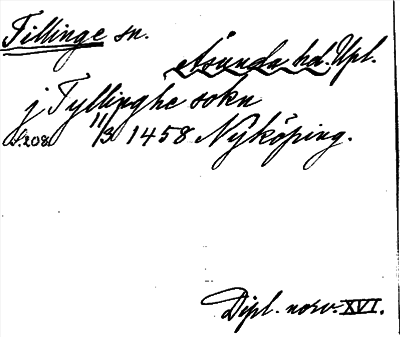 Tillinge sn.
Åsunda hd. Upl.
j Tyllinghe sokn
s. 208. 11/3 1458 Nyköping.
Dipl. norv. XVI.